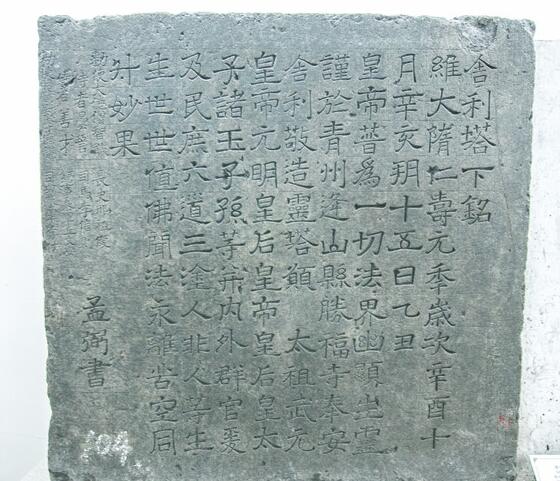 舍利塔下銘
維大隋仁壽元秊歲次辛酉十
月辛亥朔十五日乙丑
皇帝普為一切法界幽顯生靈
謹於青州逢山縣勝福寺奉安
舍利敬造靈塔願 太祖武元
皇帝元明皇后皇帝皇后皇太
子諸王子孫等并内外群官爰
及民庶六道三塗人非人等生
生世世值佛聞法永離苦空同
升妙果
敕使大德僧智能 長史邢祖俊
司馬李信則
侍者善才
孟弼書